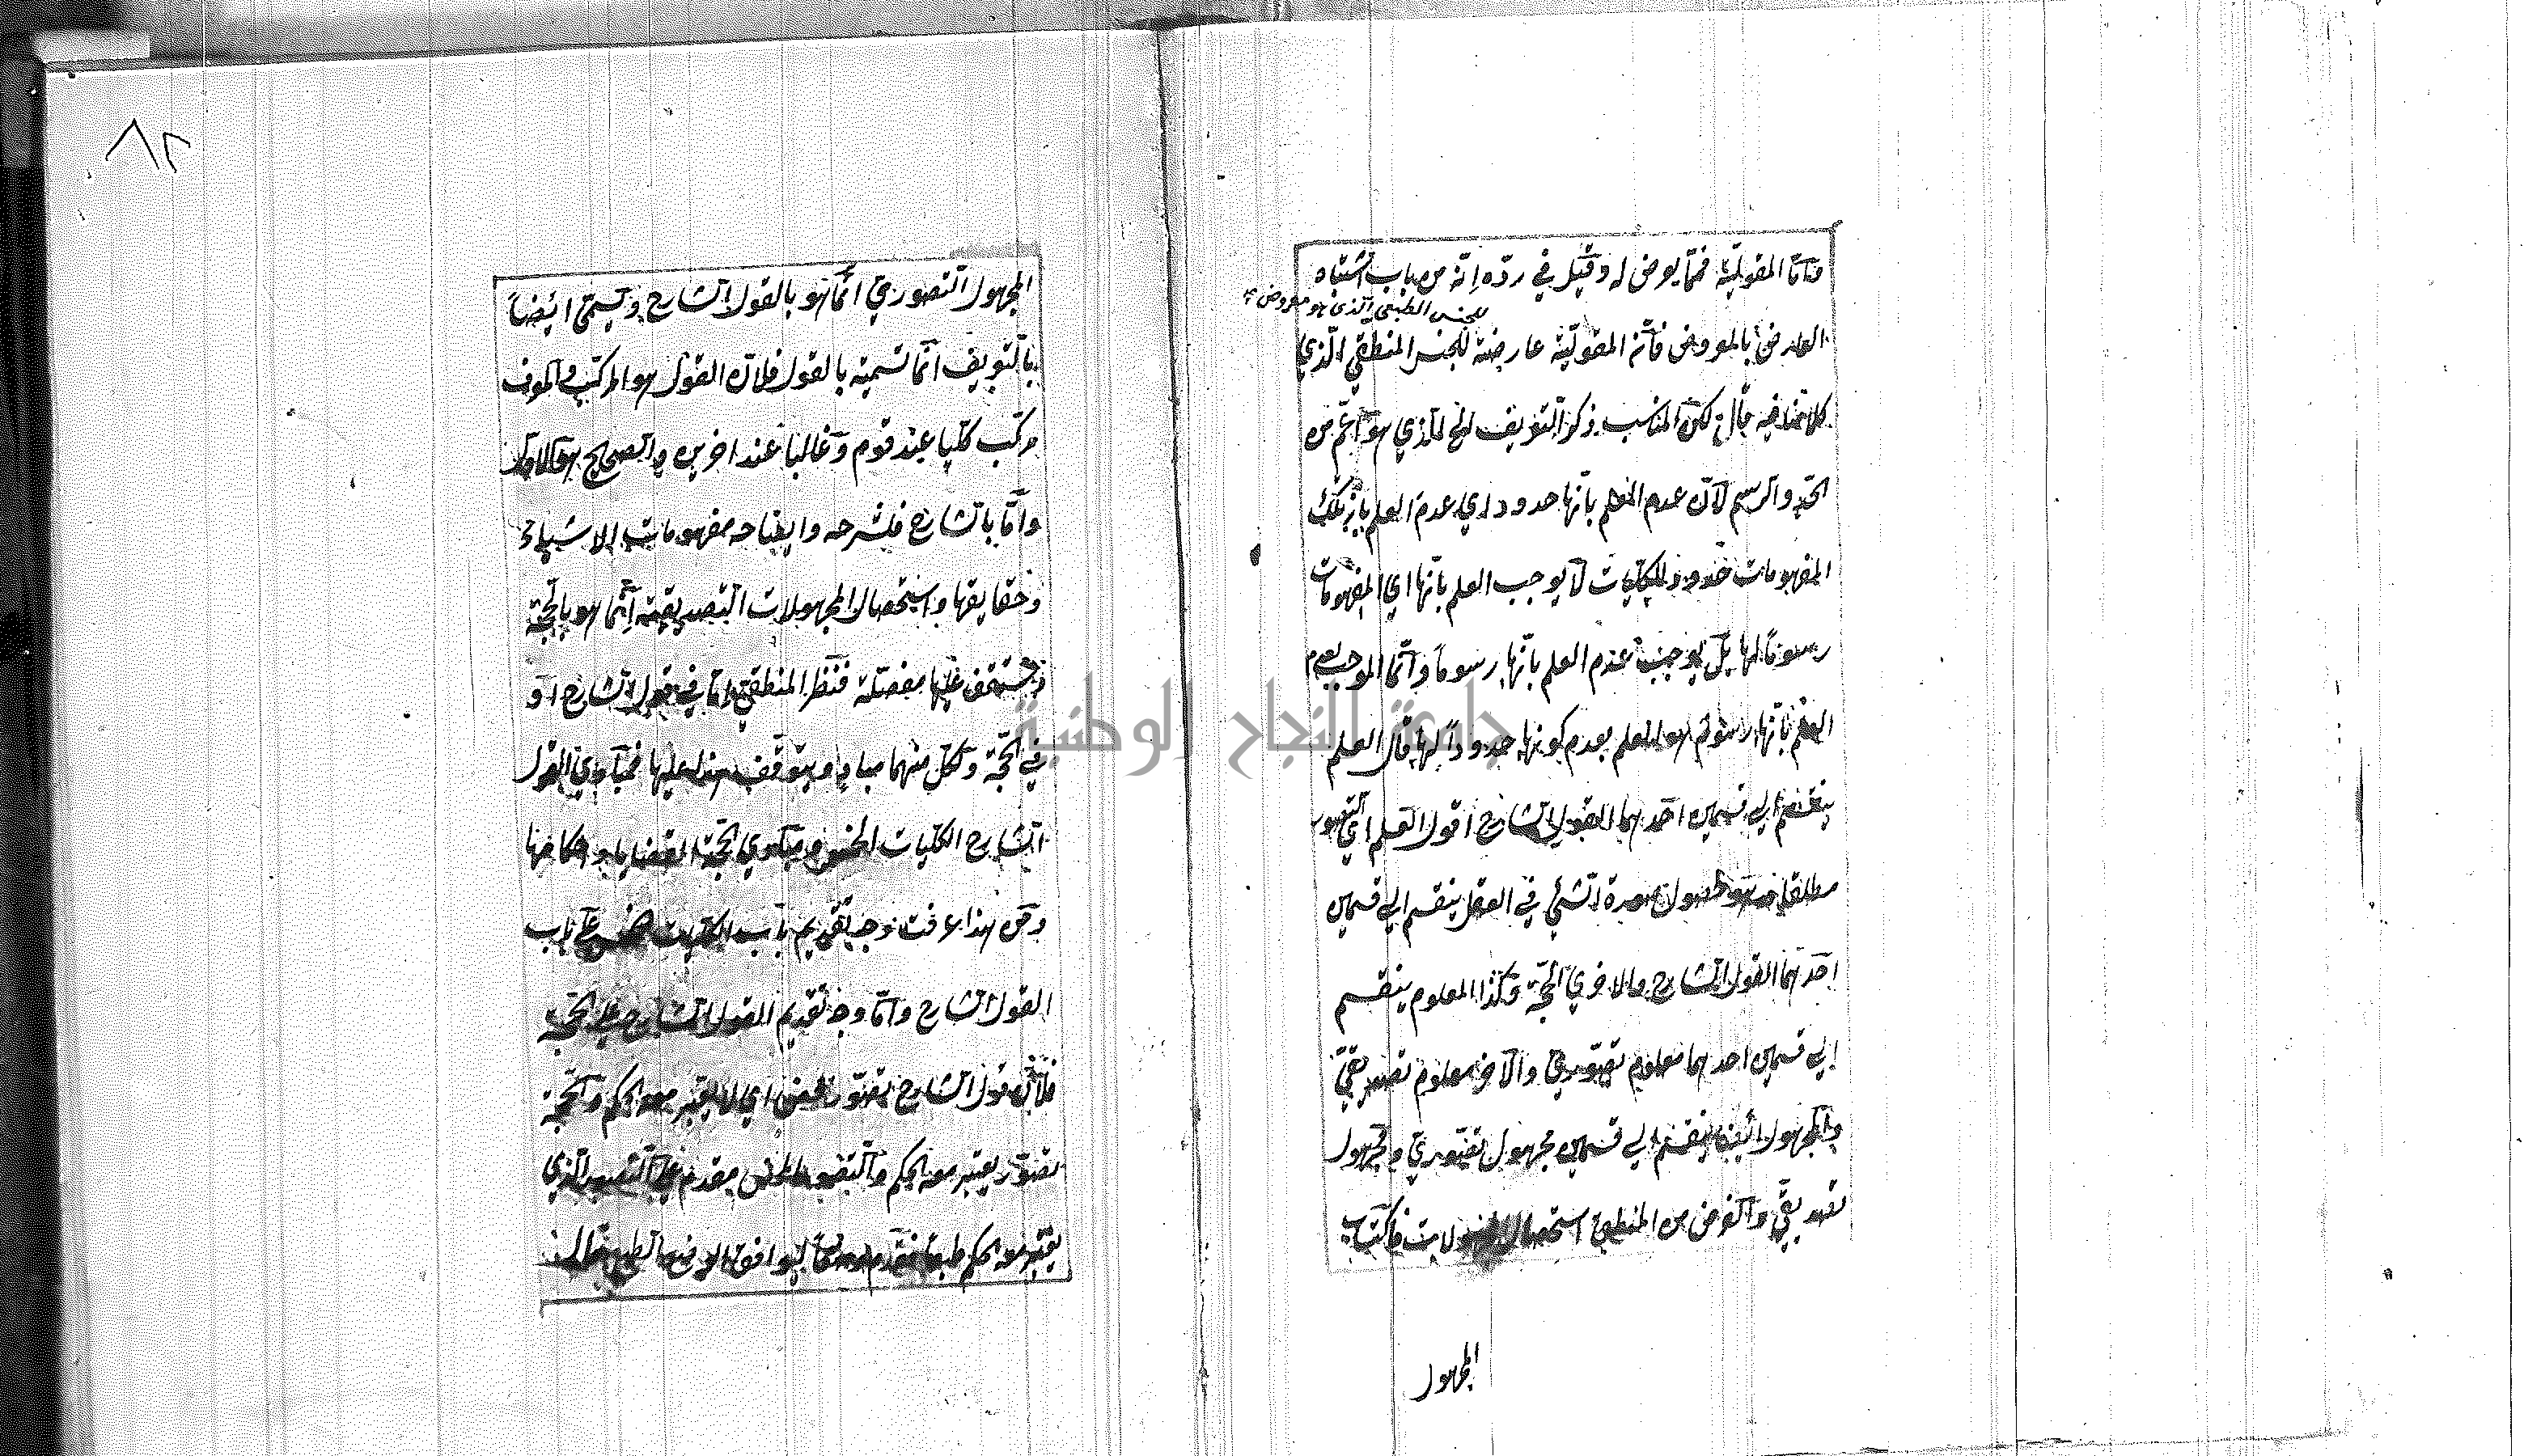 وأمّا المقوليّة فممّا يعرض له وقيل في ردّه إنّه من باب اشتباه
للجنس الطبيعي الذي هو معروض
العارض بالمعروض فأنّ المقوليّة عارضة للجنس المنطقي الّذي
كلامنا فيه قال لكنّ المناسب ذكر التعريف الذي هو أعمّ من
الحدّ والرسم لأنّ عدم العلم بأنّها حدود اي عدم العلم بأنّ تلك
المفهومات حدود للكليّات لا يوجب العلم بأنّها اي المفهومات
رسوماً لها بل يوجب عدم العلم بأنّها رسوماً وأنّما الموجب
العلم بأنّها رسوم هو العلم بعدم كونها حدوداً لها قال العلم
ينقسم الي قسمين احدهما القول الشارح اقول العلم اي التصور
مطلقا هو حصول صورة الشئ في العقل ينقسم الي قسمين
احدهما القول الشارح والاخري الحجّة وكذا المعلوم ينقسم
الي قسمين احدهما معلوم تصوّريّ والآخر معلوم تصديقيّ
والمجهول أيضا ينقسم الي قسمين مجهول تصوّريّ ومجهول
تصديقيّ والغرض من المنطق استحصال المجهولات فاكتساب
المجهول
٨٢
المجهول التصوريّ انّما هو بالقول الشارح ويسمّى ائيضاً
بالتعريف انّما تسميته بالقول فلانّ القول هو المركّب والمعرف
مركّب كليّا عند قوم وغالبا عند اخرين والصحيح هو الاول
وأمّا بالشارح فلشرحه وايضاحه مفهومات الاشياء
وحقايقها واستحصال المجهولات التصديقيّة إنّما هو بالحجّة
وستقف عليها مفصّلة فنظر المنطقيّ إمّا في قول الشارح او
في الحجّة ولكلّ منهما مباد ويتوقّف عليها فمبادي القول
الشارح الكليات الخمس ومبادي الحجّة القضايا واحكامها
ومن هذا عرفت وجه تقديم باب الكليات الخمس على باب
القول الشارح وامّا وجه تقديم القول الشارح على الحجّة
فلأنّ قول الشارح تصوّر محض اي لا يعتبر معه الحكم والحجّة
تصوّر يعتبر معه الحكم والتصور المحض مقدم على التصور الذي
يعتبر معه الحكم طبعا فقدم وضعاً ليوافق الوضع الطبع قال
جامعة النجاح الوطنية